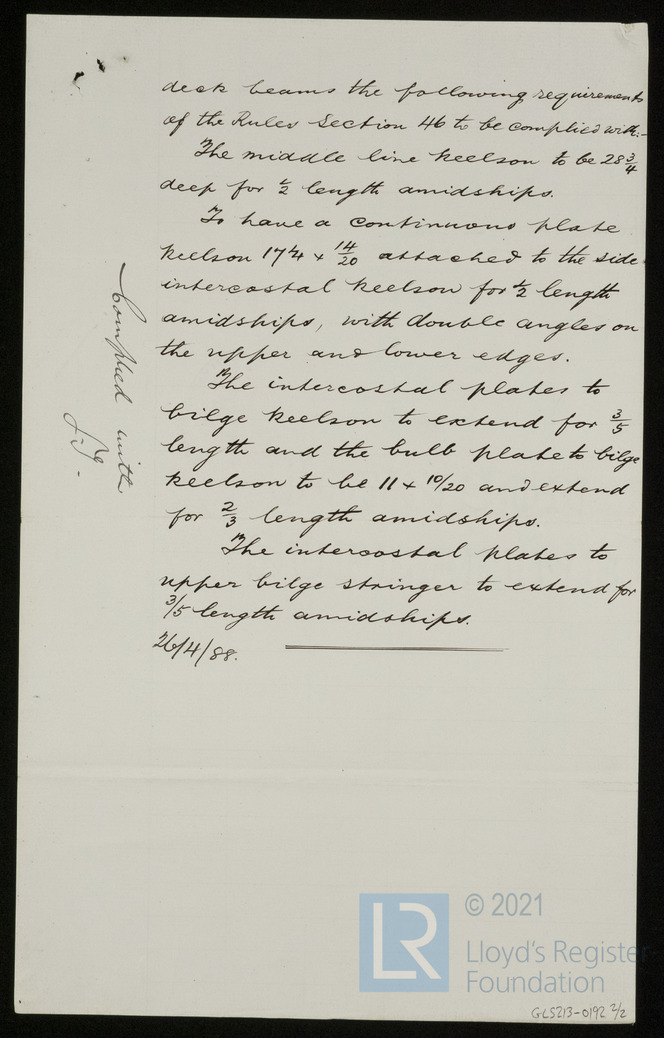 deck beams the following requirements
of the Rules Section 46 to be complied with:-
The middle line keelson to be 28 3/4
deep for 1/2 length amidships.
To have a continuous plate
keelson 17 1/4 x 14/20 attached to the side
intercostal keelson for 1/2 length
amidships, with double angles on
the upper and lower edges.
The intercostal plates to
bilge keelson to extend for 3/5
length and the bulb plate to bilge
keelson to be 11 x 10/20 and extend
for 2/3 length amidships.
The intercostal plates to
upper bilge stringer to extend for
3/5 length amidships.
26/4/88.
Complied with
LR
© 2021
Lloyd's Register
Foundation
GLS213-0192 2/2